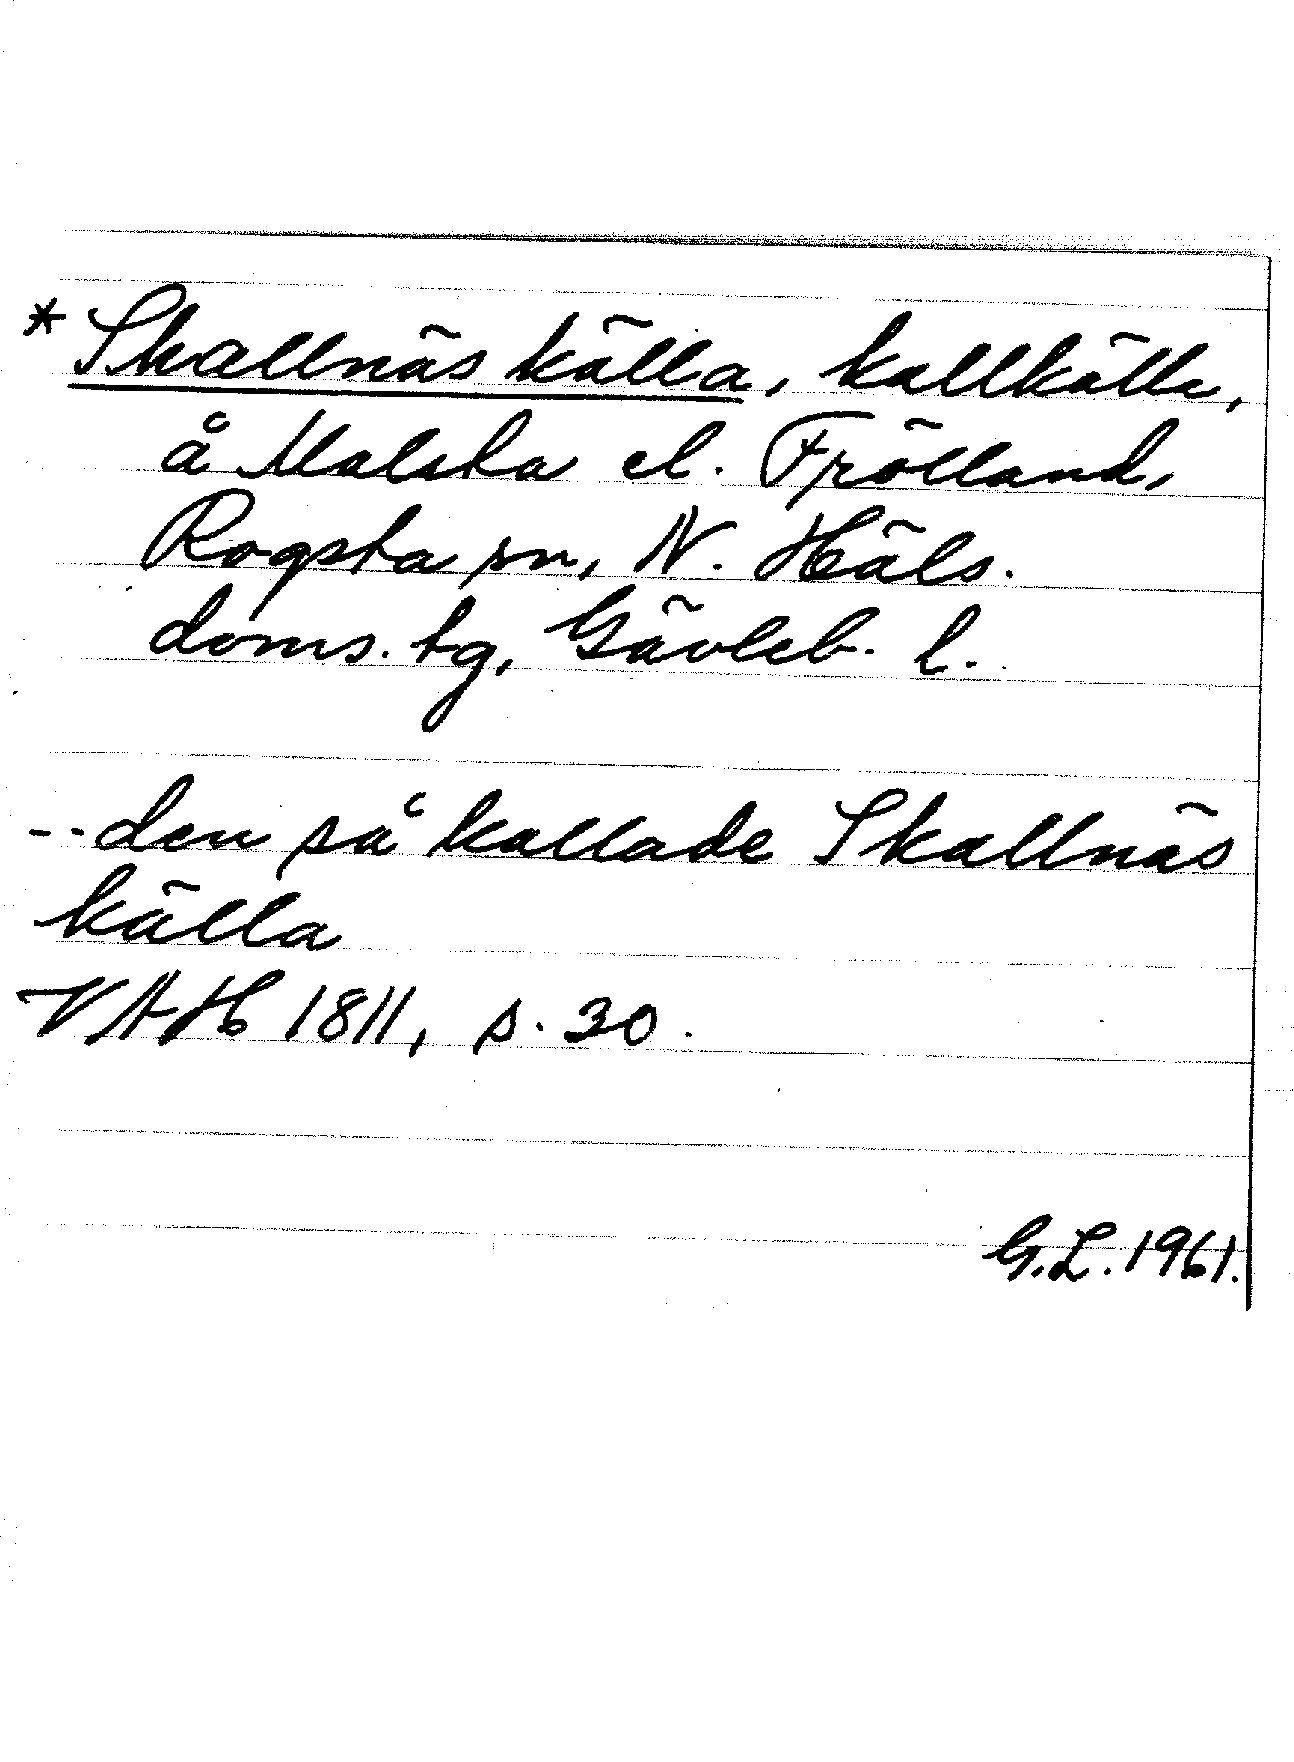 * Skallnäs källa, kallkälla,
å Malsta el. Frölland,
Rogsta sn, N. Häls.
doms. tg, Gävleb. l.
-- den så kallade Skallnäs
källa
VAH 1811, s. 30.
G.L. 1961.